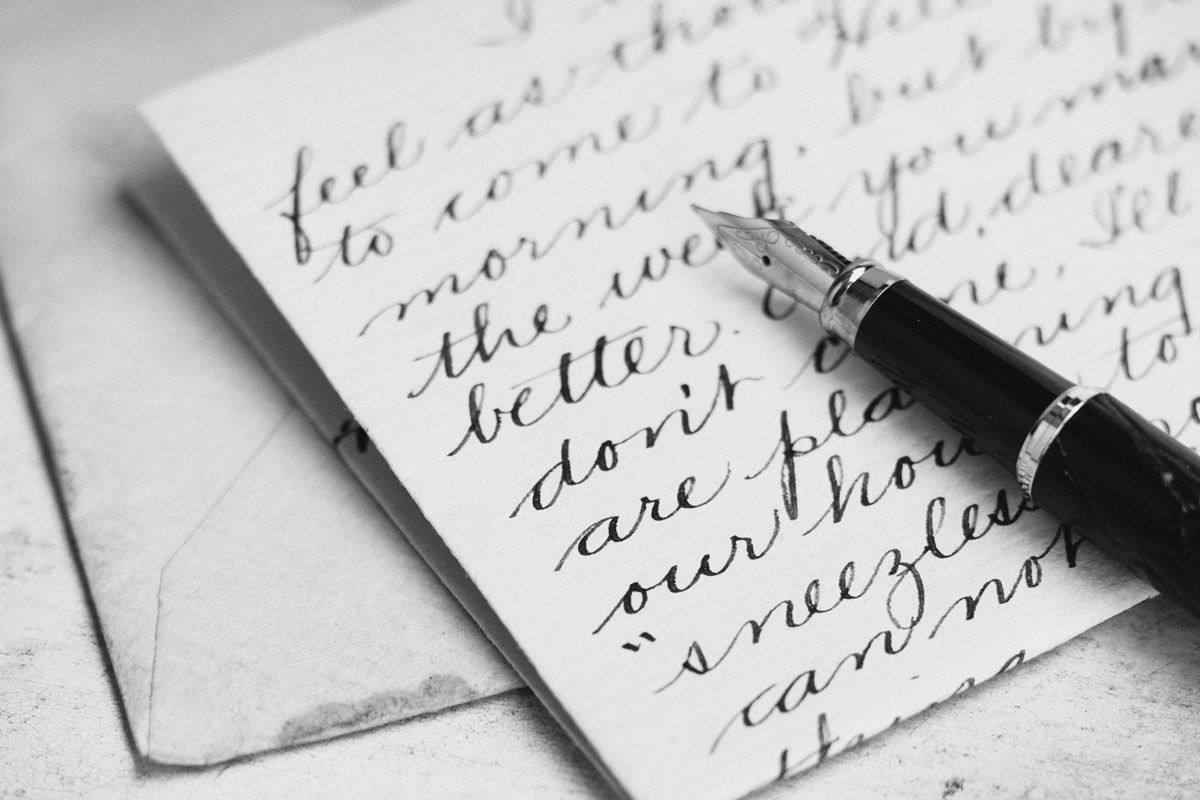 I
feel as thou
to come to Hel
morning, but by
the week you mar
better. and, deare
don't c me, I'll
are pla ning
our hou to
"sneezless
can not